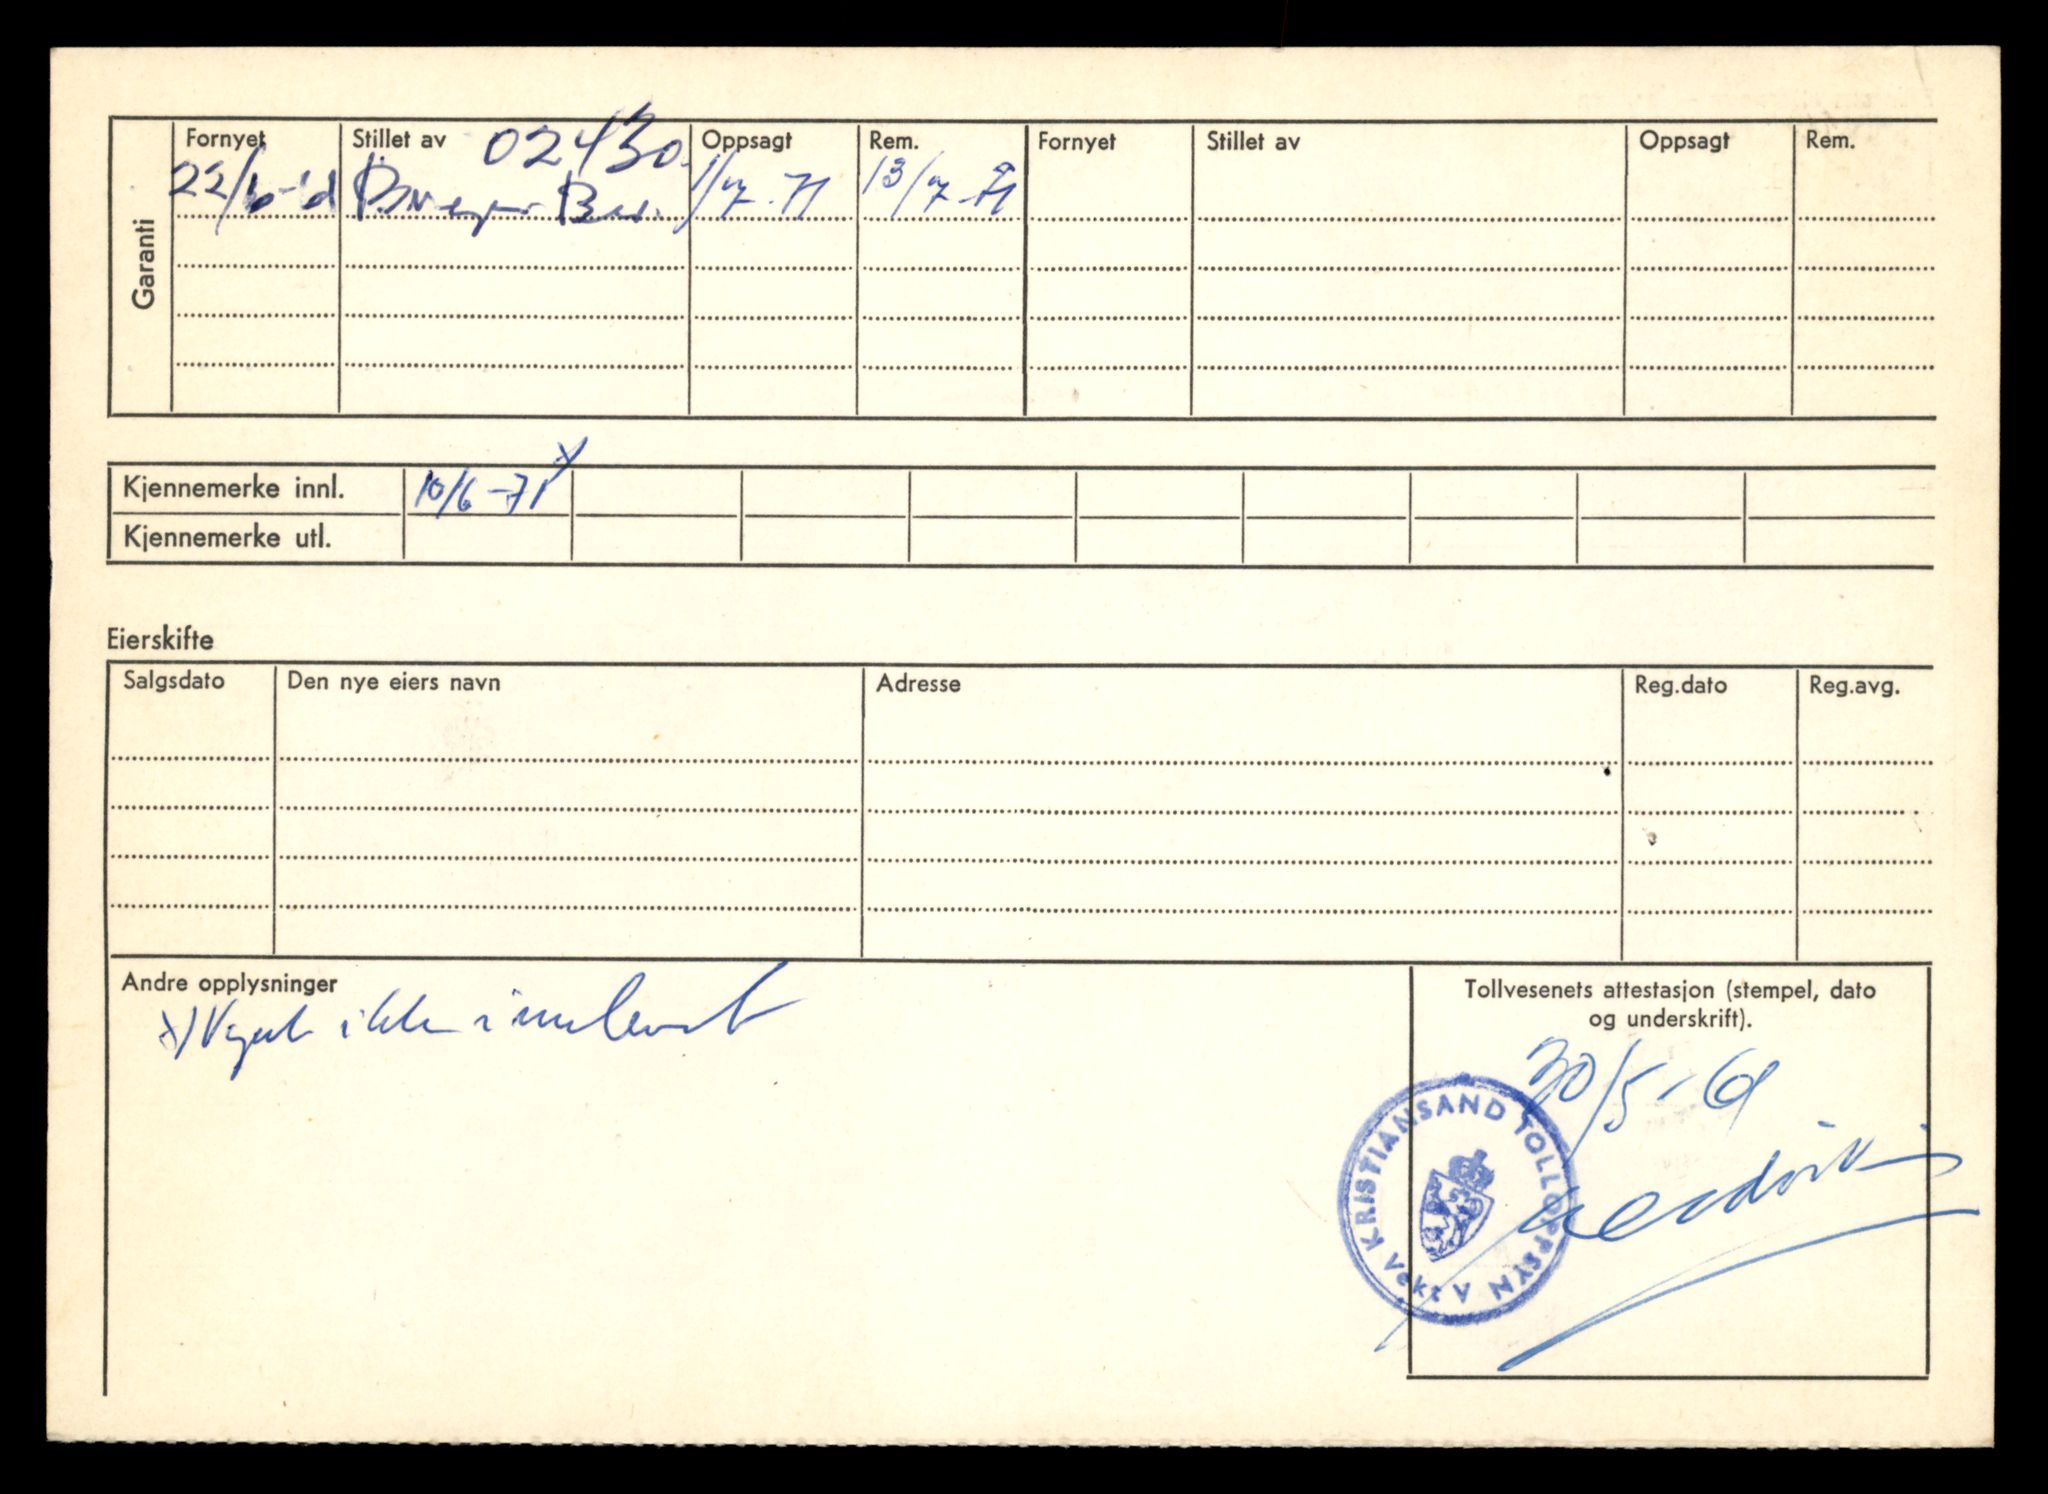 Garanti
Fornyet Stillet av 02430 Oppsagt Rem. Fornyet Stillet av Oppsagt Rem.
22/6- 1/7-71 13/7-71
Kjennemerke innl. 10/6-71 x)
Kjennemerke utl.
Eierskifte
Salgsdato Den nye eiers navn Adresse Reg.dato Reg.avg.
Andre opplysninger
x) ikke innlevert
Tollvesenets attestasjon (stempel, dato
og underskrift).
30/5-69
KRISTIANSAND TOLLOPPSYN
Vekt V